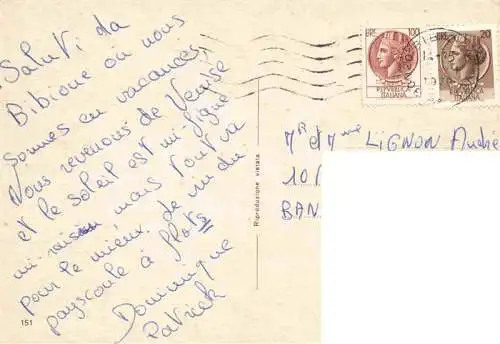 Saluti da
Bibione où nous
sommes en vacances
Nous revenons de Venise
et le soleil est mi-figue
mi-raisin mais tout va
pour le mieux. Le vin du
pays coule à flots
Dominique
Patrick
151
Riproduzione vietata
LIRE 100
REPVBBLICA
ITALIANA
20
ITALIANA
Mr et Mme LIGNON André
10
BAN